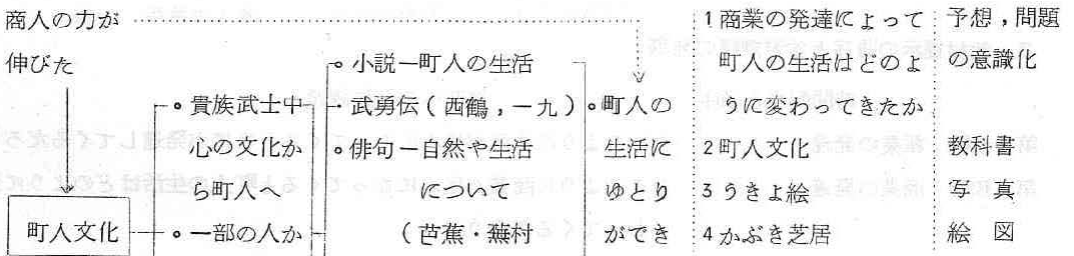 商人の力が
伸びた
町人文化
・貴族武士中
心の文化か
ら町人へ
・一部の人か
・小説ー町人の生活
武勇伝(西鶴,一九)
・俳句ー自然や生活
について
(芭蕉・蕪村
・町人の
生活に
ゆとり
ができ
1商業の発達によって
町人の生活はどのよ
うに変わってきたか
2町人文化
3うきよ絵
4かぶき芝居
予想,問題
の意識化
教科書
写真
絵図